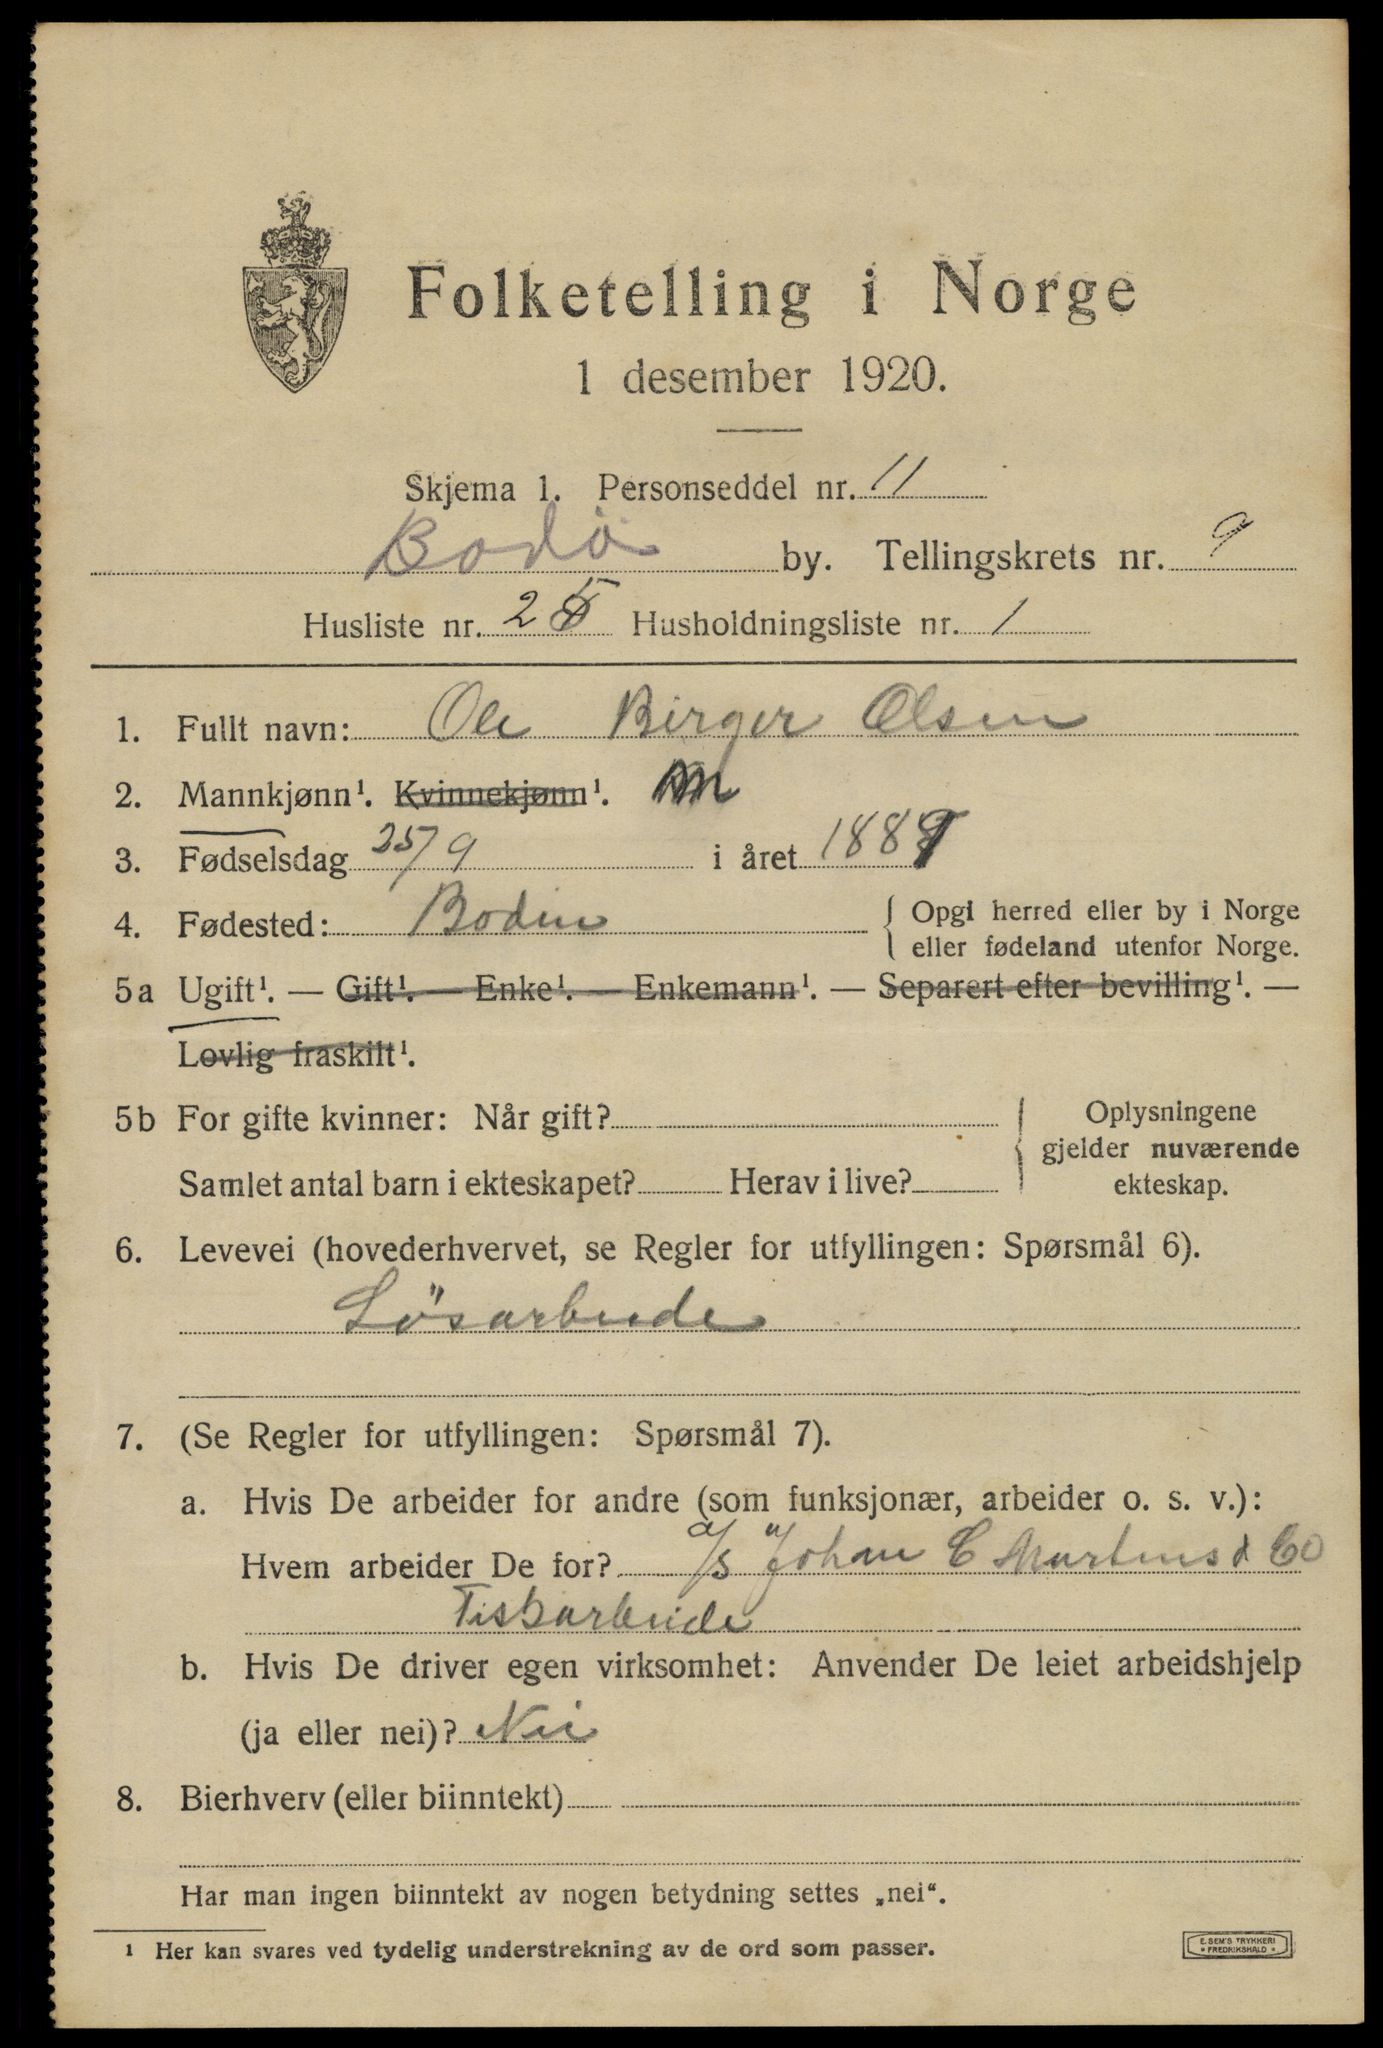 Folketelling i Norge
1 desember 1920.
Skjema 1. Personseddel nr. 11
Bodö by. Tellingskrets nr. 9
Husliste nr. 25 Husholdningsliste nr. 1
1. Fullt navn: Ole Birger Olsen
2. Mannkjønn¹. Kvinnekjønn¹. M
3. Fødselsdag 25/9 i året
4. Fødested: Bodin { Opgi herred eller by i Norge
eller fødeland utenfor Norge.
5a Ugift¹. — Gift¹. — Enke¹. — Enkemann¹. — Separert efter bevilling¹. —
Lovlig fraskilt¹.
5b For gifte kvinner: Når gift? { Oplysningene
gjelder nuværende
Samlet antal barn i ekteskapet? Herav i live? ekteskap.
6. Levevei (hovederhvervet, se Regler for utfyllingen: Spørsmål 6).
Lösarbeide
7. (Se Regler for utfyllingen: Spørsmål 7).
a. Hvis De arbeider for andre (som funksjonær, arbeider o. s. v.):
Hvem arbeider De for? a/s Johan C Martens & Co
Fiskarbeide
b. Hvis De driver egen virksomhet: Anvender De leiet arbeidshjelp
(ja eller nei)? Nei
8. Bierhverv (eller biinntekt)
Har man ingen biinntekt av nogen betydning settes „nei“.
¹ Her kan svares ved tydelig understrekning av de ord som passer.
E. SEM'S TRYKKERI
* FREDRIKSHALD *